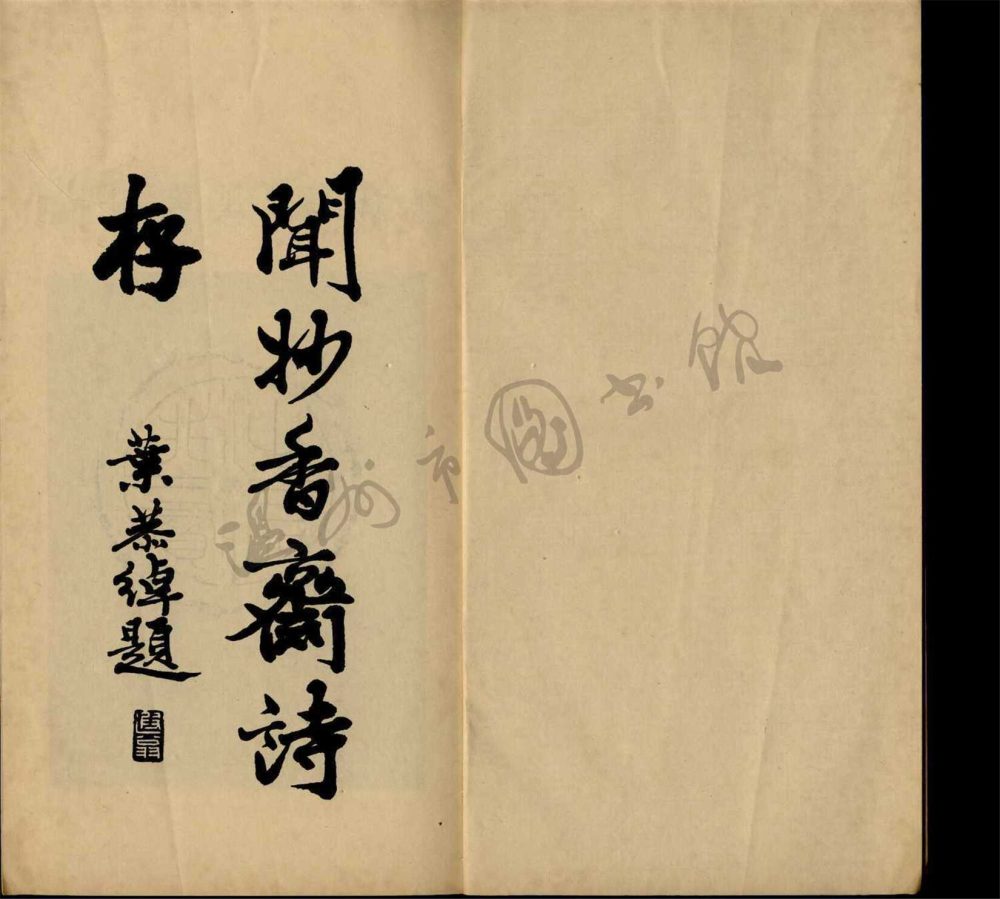 聞妙香齋詩
存
葉恭綽題
溫州市圖書館